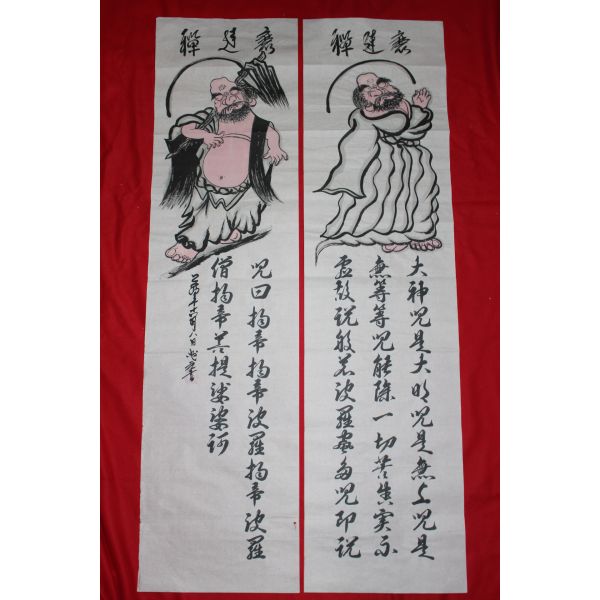 禪達磨
大神呪是大明呪是無上呪是
無等等呪能除一切苦真實不
虛故說般若波羅蜜多呪即說
禪達磨
呪曰揭帝揭帝波羅揭帝波羅
僧揭帝菩提娑婆訶
八日
書